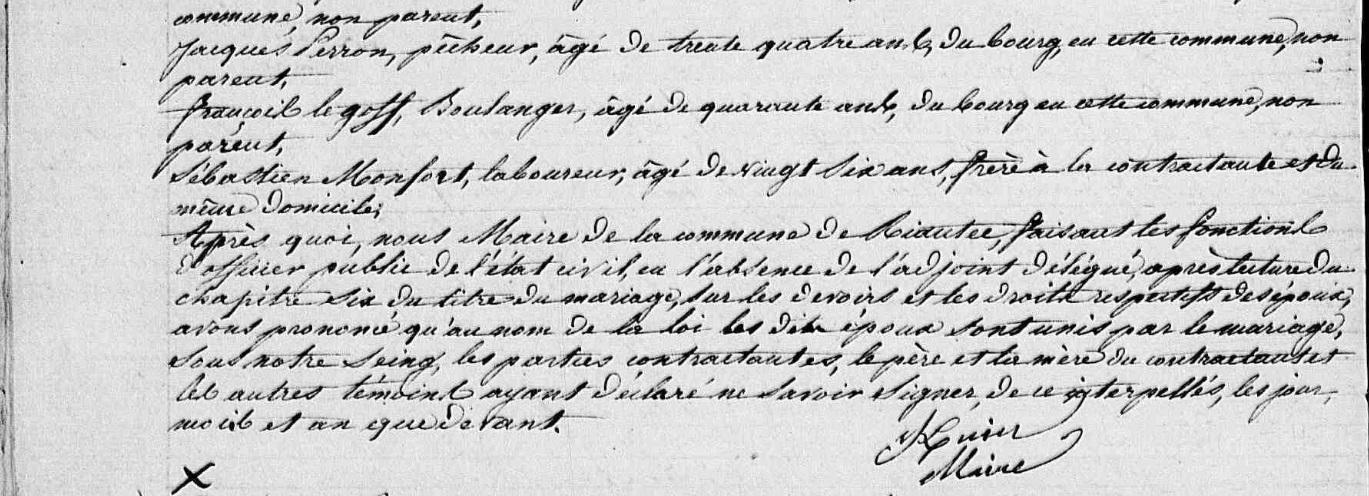 commune, non parent,
Jacques Perron, pêcheur, âgé de trente quatre ans, du bourg en cette commune, non
parent,
françois le goff, Boulanger, âgé de quarante ans, du bourg en cette commune, non
parent,
Sébastien Monfort, laboureur, âgé de vingt six ans, frère à la contractante et du
même domicile;
Après quoi, nous Maire de la commune de Riantec, faisant les fonctions
d'officier public de l'état civil, en l'absence de l'adjoint délégué, après lecture du
chapitre six du titre du mariage, sur les devoirs et les droits respectifs des époux,
avons prononcé qu'au nom de la loi les dits époux sont unis par le mariage,
sous notre seing, les parties contractantes, le père et la mère du contractant et
les autres témoins ayant déclaré ne savoir signer, de ce interpellés, les jour,
mois et an que devant.
Maire
X